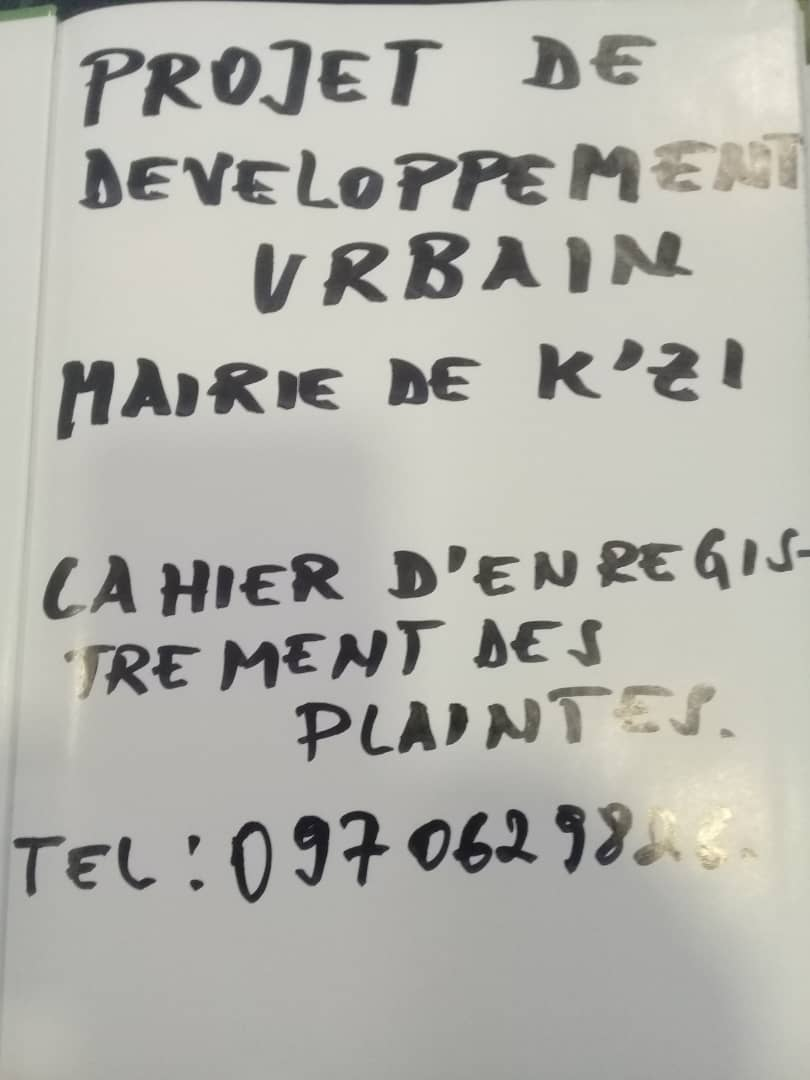 PROJET DE
DEVELOPPEMENT
URBAIN
MAIRIE DE K'ZI
CAHIER D'ENREGIS-
TREMENT DES
PLAINTES.
TEL: 097 062 98